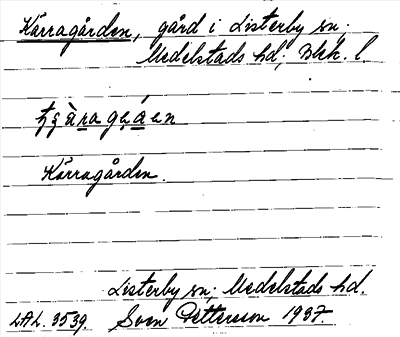 Kärragården, gård i Listerby sn;
Medelstads hd; Blek. l.
Kärragården.
Listerby sn; Medelstads hd.
LAL. 3539. Sven Pettersson 1937.